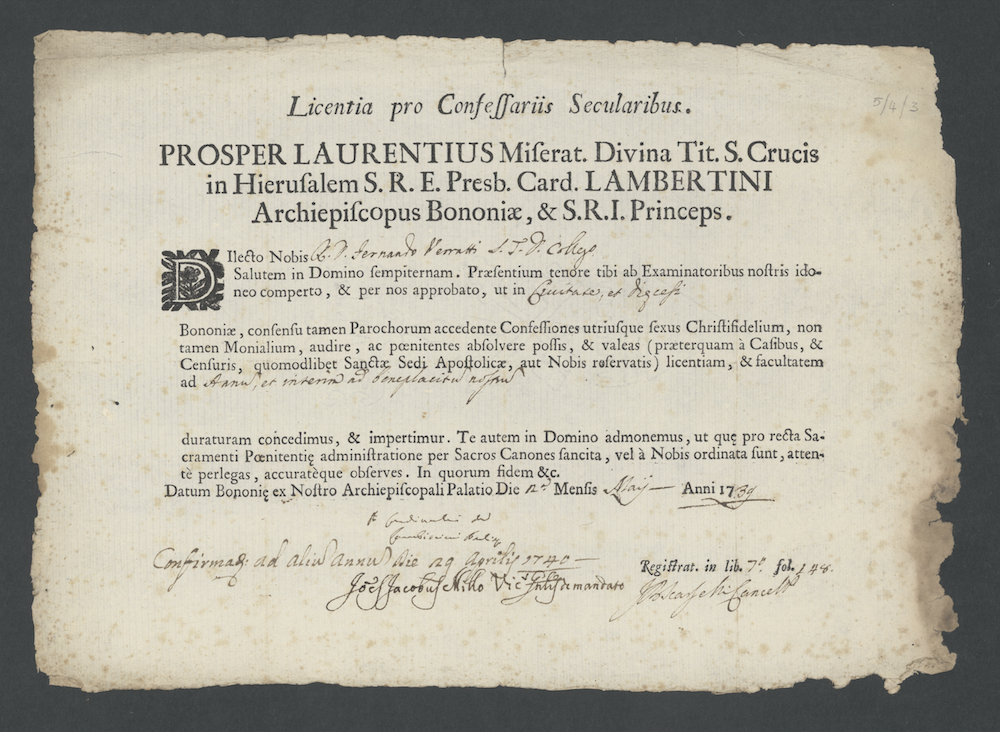 Licentia pro Confeſſariis Secularibus.
5/4/3
PROSPER LAURENTIUS Miſerat. Divina Tit. S. Crucis
in Hieruſalem S. R. E. Presb. Card. LAMBERTINI
Archiepiſcopus Bononiæ, & S.R.I. Princeps.
DIlecto Nobis R. D. Fernando Verratti S. T. D. Colleg.
Salutem in Domino ſempiternam. Præſentium tenore tibi ab Examinatoribus noſtris ido-
neo comperto, & per nos approbato, ut in Civitate, et Dięcesi
Bononiæ, conſenſu tamen Parochorum accedente Confeſſiones utriuſque ſexus Chriſtifidelium, non
tamen Monialium, audire, ac pœnitentes abſolvere poſſis, & valeas (præterquam à Caſibus, &
Cenſuris, quomodlibet Sanctæ Sedi Apoſtolicæ, aut Nobis reſervatis) licentiam, & facultatem
ad Annũ, et interim ad beneplacitũ nostrũ
duraturam concedimus, & impertimur. Te autem in Domino admonemus, ut quę pro recta Sa-
cramenti Pœnitentię adminiſtratione per Sacros Canones ſancita, vel à Nobis ordinata ſunt, atten-
tè perlegas, accuratèque obſerves. In quorum fidem &c.
Datum Bononię ex Noſtro Archiepiſcopali Palatio Die 12a Menſis Maij Anni 1739
Confirmat: ad aliũ Annũ die 29 Aprilis 1740
Regiſtrat. in lib. 7o. fol. 148.
Jões Jacobus Millo Vics Gnlis de mandato
Cancells